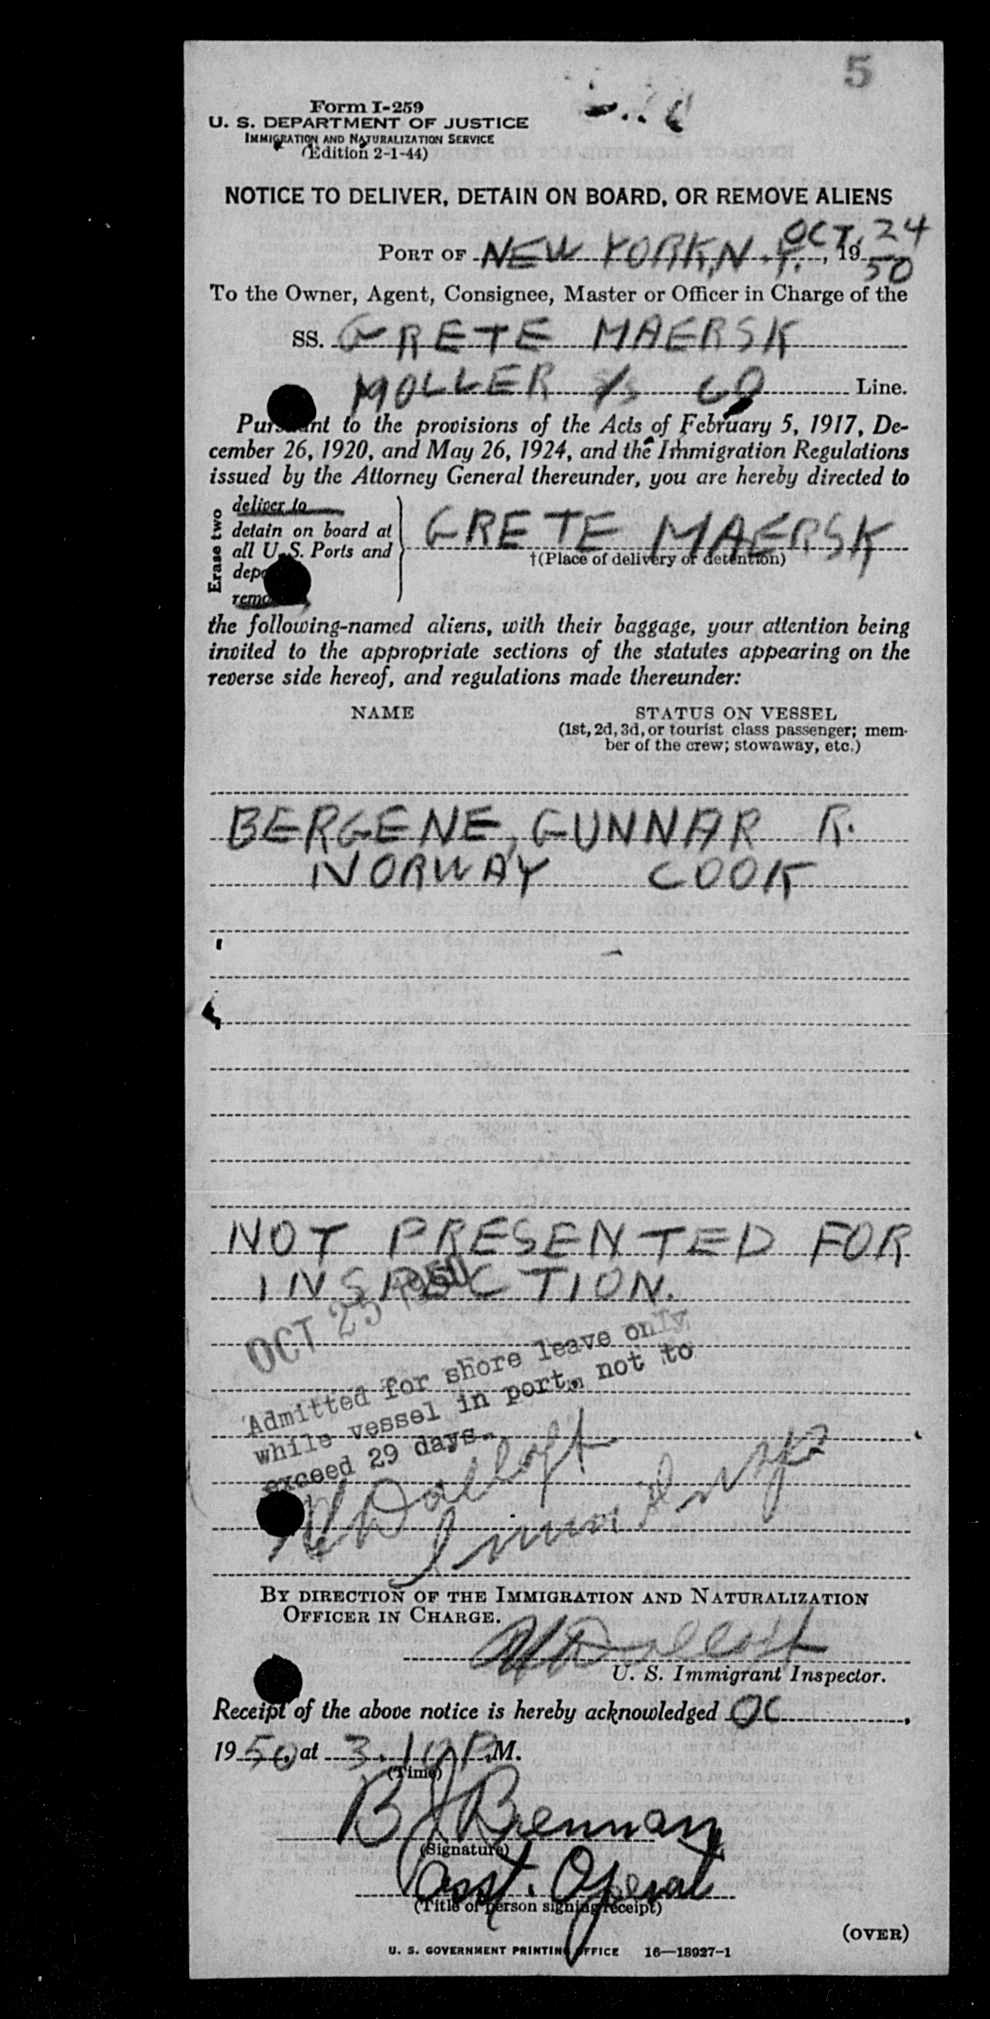 5
Form I-259
U. S. DEPARTMENT OF JUSTICE
IMMIGRATION AND NATURALIZATION SERVICE
(Edition 2-1-44)
NOTICE TO DELIVER, DETAIN ON BOARD, OR REMOVE ALIENS
PORT OF NEW YORK, N.Y., OCT. 24, 1950
To the Owner, Agent, Consignee, Master or Officer in Charge of the
SS. GRETE MAERSK
MOLLER S/S CO Line.
Pursuant to the provisions of the Acts of February 5, 1917, De-
cember 26, 1920, and May 26, 1924, and the Immigration Regulations
issued by the Attorney General thereunder, you are hereby directed to
Erase two
deliver to
detain on board at
all U. S. Ports and
depo
remo
GRETE MAERSK
†(Place of delivery or detention)
the following-named aliens, with their baggage, your attention being
invited to the appropriate sections of the statutes appearing on the
reverse side hereof, and regulations made thereunder:
NAME STATUS ON VESSEL
(1st, 2d, 3d, or tourist class passenger; mem-
ber of the crew; stowaway, etc.)
BERGENE, GUNNAR R.
NORWAY COOK
NOT PRESENTED FOR
INSPECTION.
OCT 25 1950
Admitted for shore leave only
while vessel in port, not to
exceed 29 days.
BY DIRECTION OF THE IMMIGRATION AND NATURALIZATION
OFFICER IN CHARGE.
U. S. Immigrant Inspector.
Receipt of the above notice is hereby acknowledged OC,
1950, at 3.10 P.M.
(Time)
B J Brennan
(Signature)
Asst.
(Title of person signing receipt)
(OVER)
U. S. GOVERNMENT PRINTING OFFICE 16—18927-1